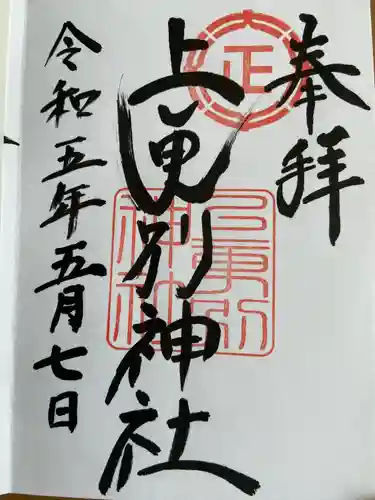 奉拝
上更別神社
令和五年五月七日
正
上更別
神社